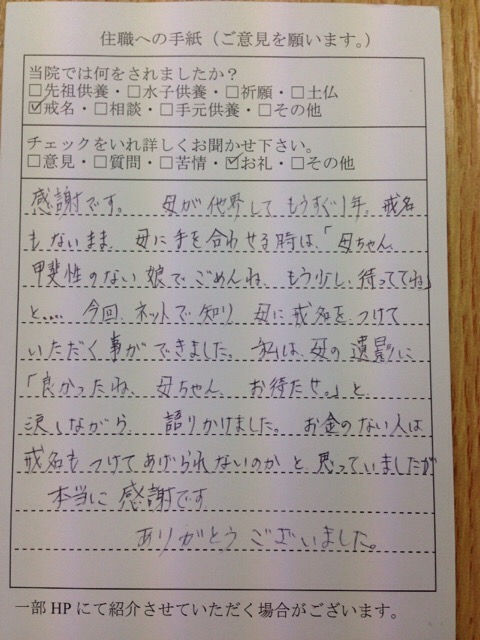 住職への手紙（ご意見を願います。）
当院では何をされましたか？
□先祖供養・□水子供養・□祈願・□土仏
☑戒名・□相談・□手元供養・□その他
チェックをいれ詳しくお聞かせ下さい。
□意見・□質問・□苦情・☑お礼・□その他
感謝です。 母が他界して もうすぐ1年。戒名
もないまま、母に手を合わせる時は、「母ちゃん、
甲斐性のない娘でごめんね、もう少し、待っててね」
と.... 今回、ネットで知り 母に戒名をつけて
いただく事ができました。 私は、母の遺影に
「良かったね、母ちゃん、お待たせ。」と、
涙しながら、 語りかけました。 お金のない人は
戒名もつけてあげられないのかと思っていましたが
本当に感謝です
ありがとうございました。
一部HPにて紹介させていただく場合がございます。